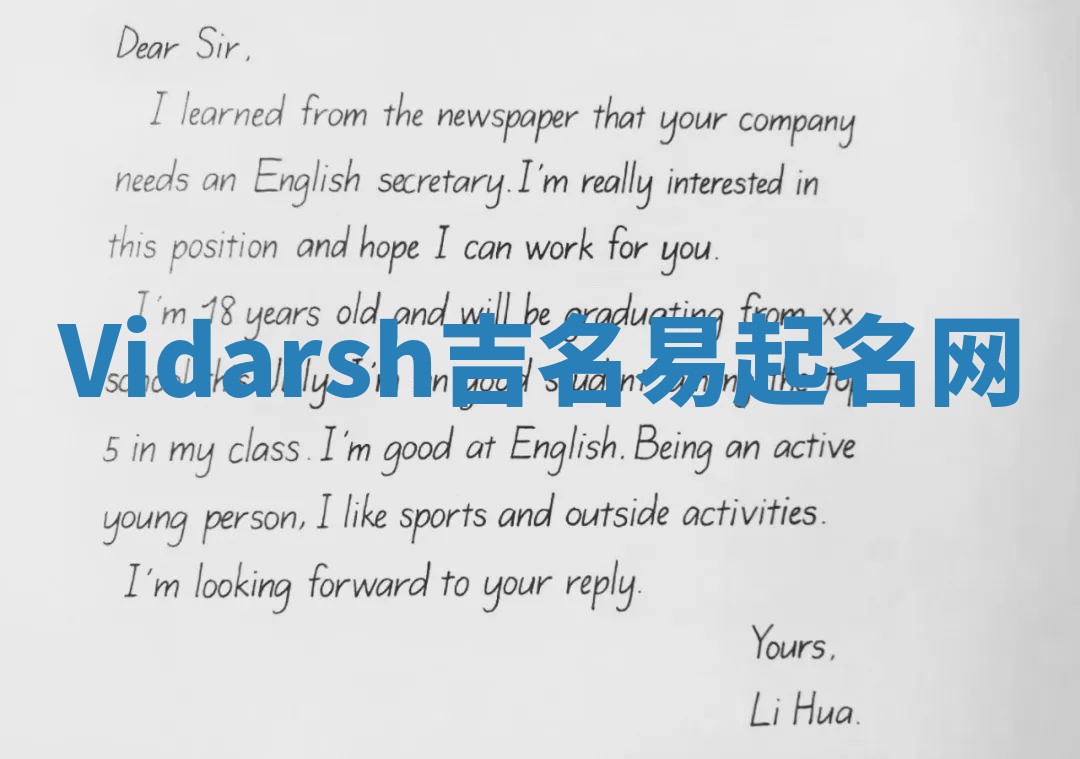 Dear Sir,
I learned from the newspaper that your company
needs an English secretary. I'm really interested in
this position and hope I can work for you.
I'm 18 years old and will be graduating from xx
Vidarsh吉名易起名网
school this July. I'm an good student among the top
5 in my class. I'm good at English. Being an active
young person, I like sports and outside activities.
I'm looking forward to your reply.
Yours,
Li Hua.